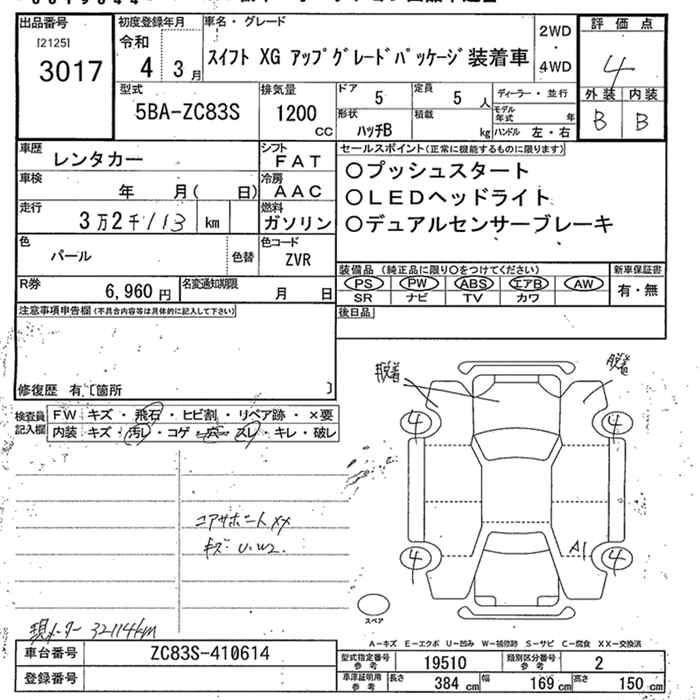 出品番号
[2125]
3017
初度登録年月
令和
4 3月
車名・グレード
スイフト XG アップグレードパッケージ装着車
2WD
・
4WD
評価点
4
外装 内装
B B
型式
5BA-ZC83S
排気量
1200
CC
ドア
5
定員
5 人
形状
ハッチB
積載
kg
ディーラー・並行
モデル
年式 年
ハンドル 左・右
車歴
レンタカー
シフト
FAT
車検
年 月( 日)
冷房
AAC
走行
3万2千113 km
燃料
ガソリン
色
パール
色替
色コード
ZVR
R券
6,960円
名変通知期限
月 日
セールスポイント(正常に機能するものに限ります)
○プッシュスタート
○LEDヘッドライト
○デュアルセンサーブレーキ
装備品(純正品に限り○をつけてください)
PS PW ABS エアB AW
SR ナビ TV カワ
新車保証書
有・無
後日品
注意事項申告欄(不具合内容等は具体的に記入して下さい)
修復歴 有〔箇所 〕
検査員
記入欄
FW キズ・飛石・ヒビ割・リペア跡・×要
内装 キズ・汚レ・コゲ・穴・スレ・キレ・破レ
脱着
脱着
4 4
4 4
A1
コアサポートXX
キズ U.W2.
スペア
現メーター 32114km
A-キズ E-エクボ U-凹み W-補修跡 S-サビ C-腐食 XX-交換済
車台番号
ZC83S-410614
登録番号
型式指定番号
参考
19510
類別区分番号
参考
2
車庫証明用
参考
長さ 384 cm
幅 169 cm
高さ 150 cm